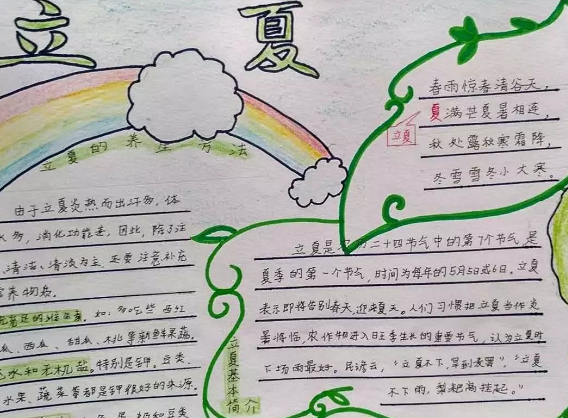 立 夏
立夏的养生方法
由于立夏炎热而出汗多,体
多,消化功能差,因此,除了注
清洁、清淡为主,还要注意补充
营养物质。
的维生素,如:多吃些西红
瓜、西瓜、甜瓜、桃等新鲜果蔬,
水和无机盐。特别是钾。豆类、
水果、蔬菜等都是钾很好的来源。
春雨惊春清谷天,
夏满芒夏暑相连,
秋处露秋寒霜降,
冬雪雪冬小大寒。
立夏
立夏是二十四节气中的第7个节气是
夏季的第一个节气,时间为每年的5月5日或6日。立夏
表示即将告别春天,迎来夏天。人们习惯把立夏当作炎
暑将临,农作物进入旺季生长的重要节气,认为立夏时
下场雨最好。民谚云,“立夏不下,旱到麦罢”,“立夏
不下雨,犁耙高挂起。”
立夏基本
简介